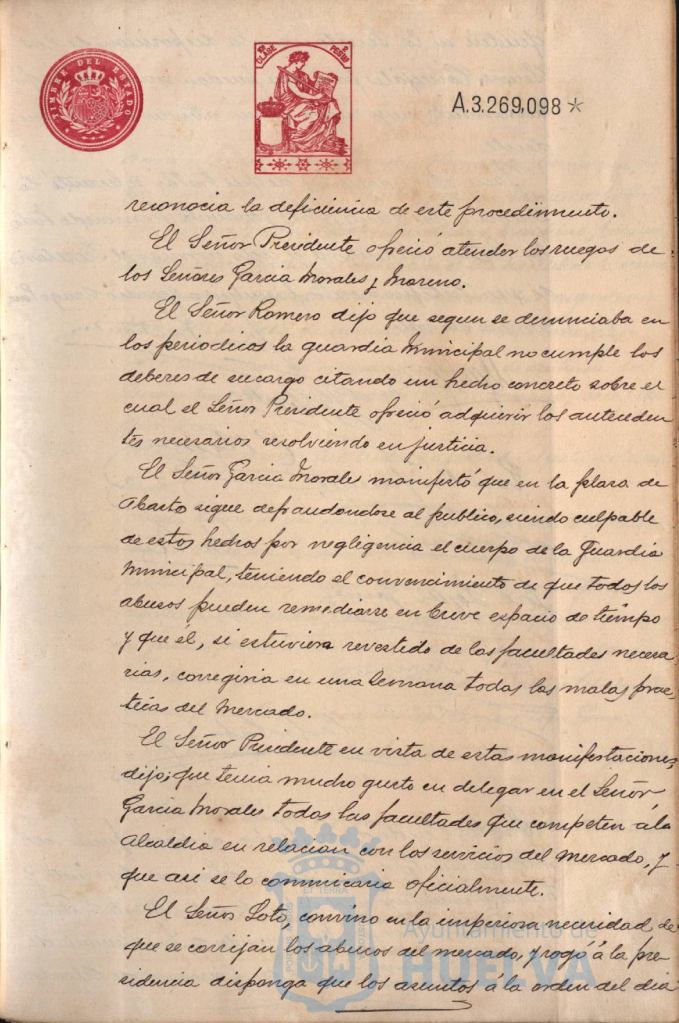 TIMBRE DEL ESTADO
10ª CLASE 2 PESETAS
A.3.269,098 *
reconocia la deficiencia de este procedimiento.
El Señor Presidente ofreció atender los ruegos de
los Señores Garcia Morales y Moreno.
El Señor Romero dijo que segun se denunciaba en
los periodicos la guardia Municipal no cumple los
deberes de su cargo citando un hecho concreto sobre el
cual el Señor Presidente ofreció adquirir los anteceden
tes necesarios resolviendo en justicia.
El Señor Garcia Morales manifestó que en la plaza de
Abasto sigue defraudandose al publico, siendo culpable
de estos hechos por negligencia el cuerpo de la Guardia
Municipal, teniendo el convencimiento de que todos los
abusos pueden remediarse en breve espacio de tiempo
y que él, si estuviera revestido de las facultades necesa
rias, corregiria en una semana todas las malas prac
ticas del Mercado.
El Señor Presidente en vista de estas manifestaciones
dijo; que tenia mucho gusto en delegar en el Señor
Garcia Morales todas las facultades que competen á la
Alcaldia en relacion con los servicios del Mercado, y
que asi se lo comunicaria oficialmente.
El Señor Soto, convino en la imperiosa necesidad de
que se corrijan los abusos del mercado, y rogó á la pre
sidencia disponga que los asuntos á la orden del dia
Ayuntamiento de
HUELVA